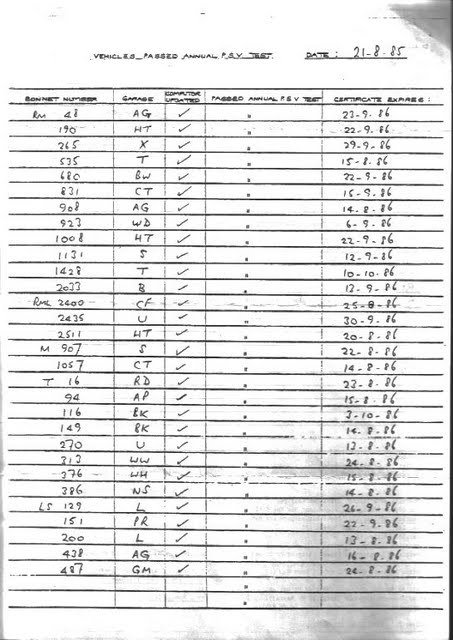 VEHICLES PASSED ANNUAL P.S.V TEST. DATE : 21-8-85
BONNET NUMBER GARAGE COMPUTOR UPDATED PASSED ANNUAL P.S.V TEST CERTIFICATE EXPIRES :
RM 48 AG ✓ " 23-9-86
190 HT ✓ " 22-9-86
265 X ✓ " 29-9-86
535 T ✓ " 15-8-86
680 BW ✓ " 22-9-86
831 CT ✓ " 15-9-86
908 AG ✓ " 14-8-86
923 WD ✓ " 6-9-86
1008 HT ✓ " 22-9-86
1131 S ✓ " 12-9-86
1428 T ✓ " 10-10-86
2033 B ✓ " 13-9-86
RML 2400 CF ✓ " 25-8-86
2435 U ✓ " 30-9-86
2511 HT ✓ " 20-8-86
M 907 S ✓ " 22-8-86
1057 CT ✓ " 14-8-86
T 16 RD ✓ " 23-8-86
94 AP ✓ " 15-8-86
116 BK ✓ " 3-10-86
149 BK ✓ " 14-8-86
270 U ✓ " 13-8-86
313 WW ✓ " 24-8-86
376 WH ✓ " 15-8-86
386 NS ✓ " 14-8-86
LS 129 L ✓ " 26-9-86
151 PR ✓ " 22-9-86
200 L ✓ " 13-8-86
438 AG ✓ " 16-8-86
487 GM ✓ " 24-8-86
"
"